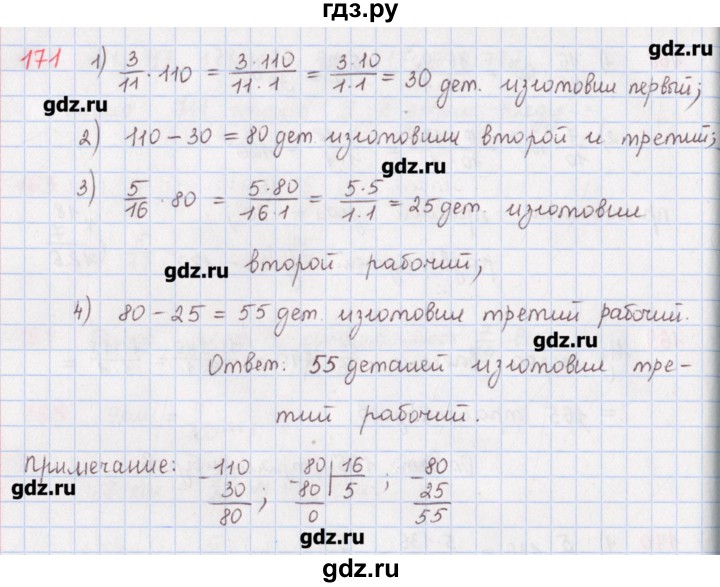 гдз.ру
171 1) 3/11 · 110 = 3·110/11·1 = 3·10/1·1 = 30 дет. изготовил первый;
gdz.ru
gdz.ru
2) 110 − 30 = 80 дет. изготовили второй и третий;
gdz.ru
3) 5/16 · 80 = 5·80/16·1 = 5·5/1·1 = 25 дет. изготовил
второй рабочий;
gdz.ru
4) 80 − 25 = 55 дет. изготовил третий рабочий.
gdz.ru
Ответ: 55 деталей изготовил тре-
тий рабочий.
Примечание: −110 ; −80 | 16 ; −80
30 80 | 5 25
80 0 55
gdz.ru
gdz.ru
гдз.ру